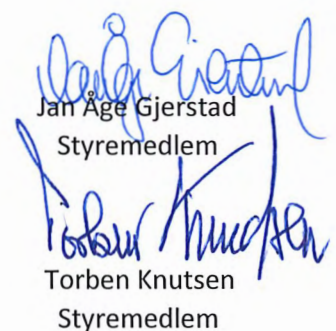 Jan Åge Gjerstad
Styremedlem
Torben Knutsen
Styremedlem